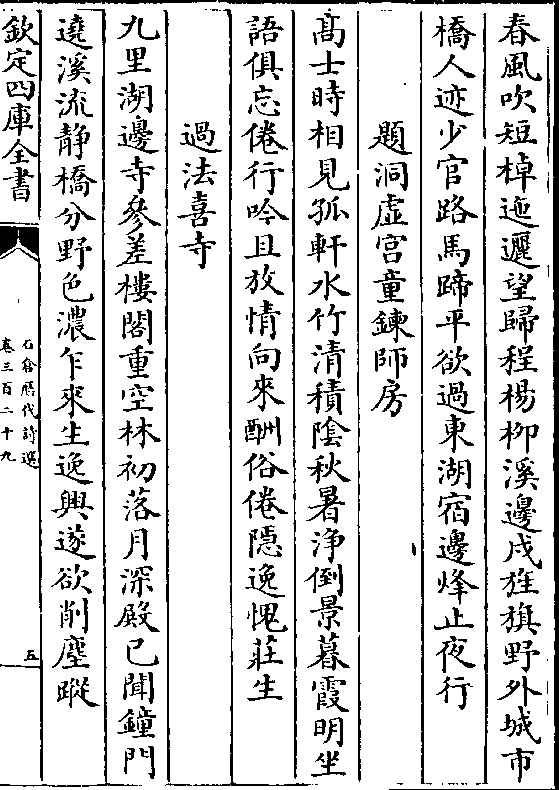 春風吹短棹迤邐望歸程楊柳溪邊戍旌旗野外城市
橋人迹少官路馬蹄平欲過東湖宿邊烽止夜行
題洞虛宫童鍊師房
髙士時相見孤軒水竹清積陰秋暑浄倒景暮霞明坐
語俱忘倦行吟且放情向來酬俗倦隱逸愧莊生
過法喜寺
九里湖邊寺參差樓閣重空林初落月深殿已聞鐘門
遶溪流静橋分野色濃乍來生逸興遂欲削塵蹤
欽定四庫全書
石倉歴代詩選
卷三百二十九
五